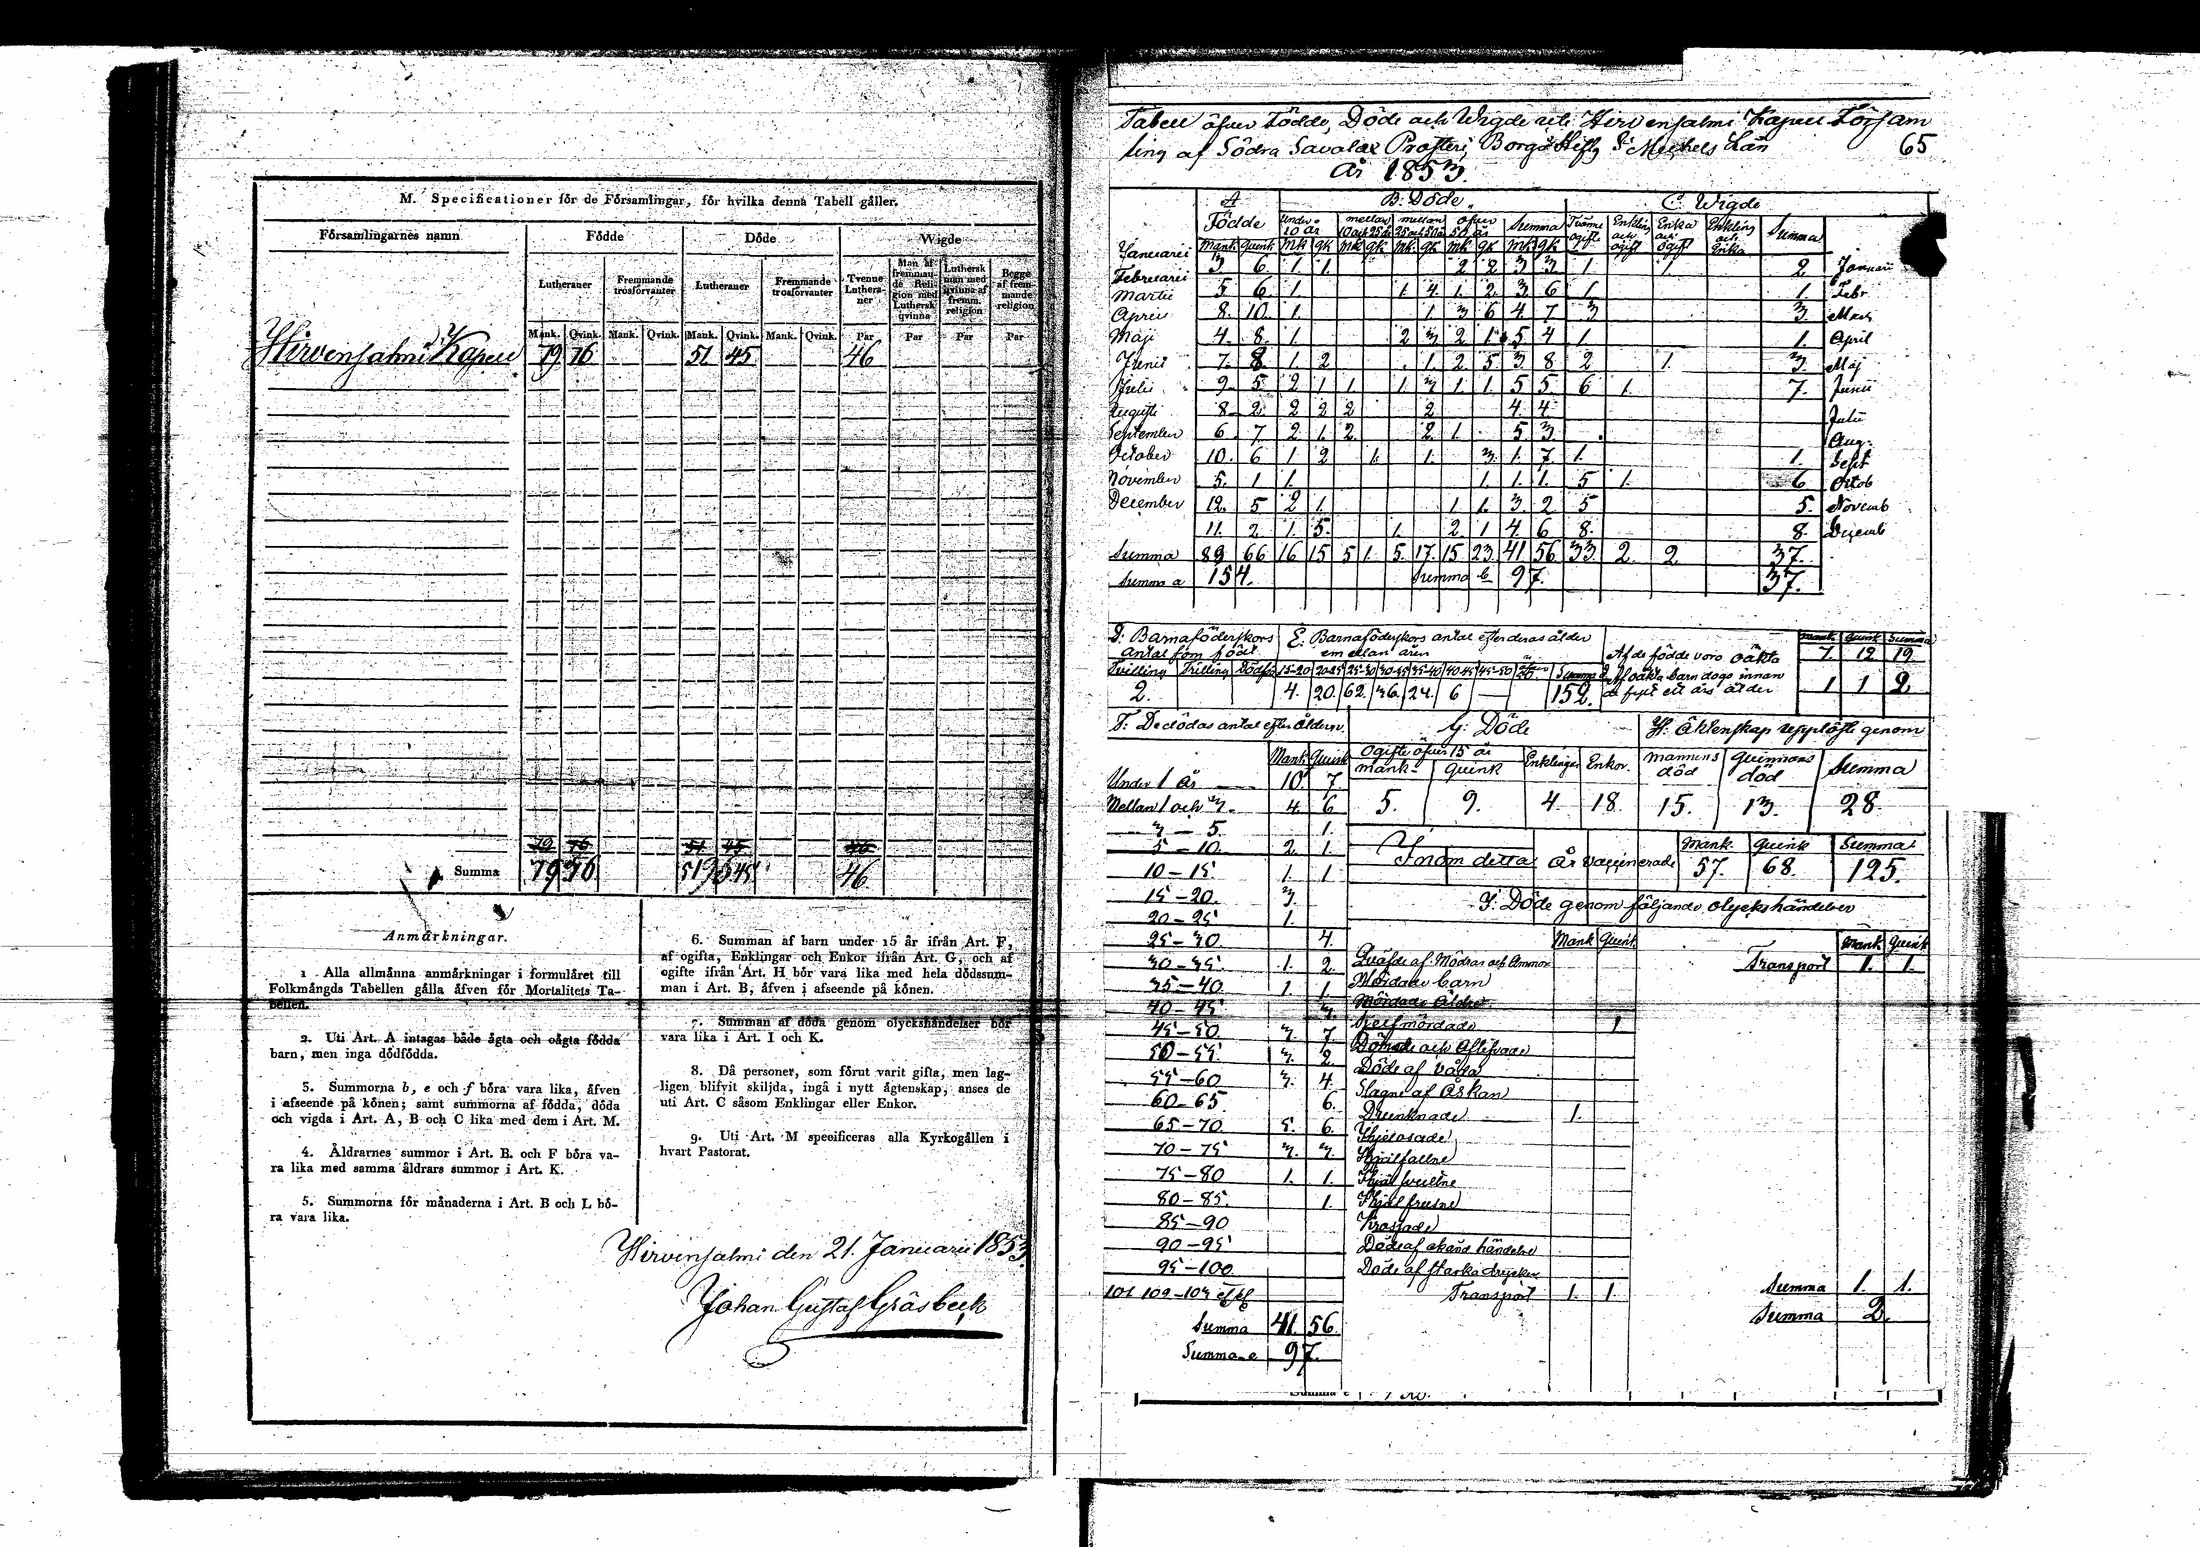 M. Specificationer för de Församlingar, för hvilka denna Tabell gäller.
Församlingarnes namn Födde Döde Wigde
Lutheraner Fremmande trosförvanter Lutheraner Fremmande trosförvanter Tvenne Lutheraner Man af fremmande Religion med Luthersk qvinna Luthersk man med qvinna af fremm. religion Begge af fremmande religion
Mank. Qvink. Mank. Qvink. Mank. Qvink. Mank. Qvink. Par Par Par Par
Hirvensalmi Kapell 79 76 51 45 46
79 76 51 45 46
Summa 79 76 51 45 46
Anmärkningar.
1 Alla allmänna anmärkningar i formuläret till
Folkmängds Tabellen gälla äfven för Mortalitets Ta-
bellen.
2. Uti Art. A intagas både ägta och oägta födda
barn, men inga dödfödda.
3. Summorna b, e och f böra vara lika, äfven
i afseende på könen; samt summorna af födda, döda
och vigda i Art. A, B och C lika med dem i Art. M.
4. Åldrarnes summor i Art. B. och F böra va-
ra lika med samma åldrars summor i Art. K.
5. Summorna för månaderna i Art. B och L bö-
ra vara lika.
6. Summan af barn under 15 år ifrån Art. F,
af ogifta, Enklingar och Enkor ifrån Art. G, och af
ogifte ifrån Art. H bör vara lika med hela dödssum-
man i Art. B, äfven i afseende på könen.
7. Summan af döda genom olyckshändelser bör
vara lika i Art. I och K.
8. Då personer, som förut varit gifta, men lag-
ligen blifvit skiljda, ingå i nytt ägtenskap, anses de
uti Art. C såsom Enklingar eller Enkor.
9. Uti Art. M specificeras alla Kyrkogällen i
hvart Pastorat.
Hirvensalmi den 21. Januarii 1853
Johan Gustaf Gråsbeck
Tabell öfver Födde, Döde och Wigde uti Hirvensalmi Kapell Församling af Södra Savolax Prosteri, Borgå Stift, St Michels Län
65
År 1853.
A Födde B. Döde. C. Wigde
under 10 år mellan 10 och 25 år mellan 25 och 50 år öfver 50 år Summa Tvänne ogifte Enkling och ogift Enka och ogift Enkling och Enka Summa
Mank. Quink. Mk Qk Mk Qk Mk Qk Mk Qk Mk Qk
Januarii 3 6 1 1 2 2 3 3 1 1 2 Januarii
Februarii 5 6 1 1 4 1 2 3 6 1 1 Febr
Martii 8 10 1 1 3 6 4 7 3 3 Mars
Aprill 4 8 1 2 3 2 1 5 4 1 1 April
Maji 7 8 1 2 1 2 5 3 8 2 1 3 Maj
Junii 9 5 2 1 1 1 3 1 1 5 5 6 1 7 Junii
Julii 8 2 2 2 2 2 4 4 Julii
Augusti 6 7 2 1 2 2 1 5 3 Aug.
September 10 6 1 2 1 1 3 1 7 1 1 Sept
October 5 1 1 1 1 1 5 1 6 Octob
November 12 5 2 1 1 1 3 2 5 5 Novemb
December 11 2 1 5 1 2 1 4 6 8 8 Decemb
Summa 89 66 16 15 5 1 5 17 15 23 41 56 33 2 2 37.
Summa a 154. Summa b 97. 37.
D: Barnaföderskors antal som födt
Tvilling Trilling Dödfödt
2.
E. Barnaföderskors antal efter deras ålder emellan åren
15-20 20-25 25-30 30-35 35-40 40-45 45-50 Summa
4. 20. 62. 36. 24. 6 — 152.
Mank. Quink Summa
Af de födde voro oäkta 7. 12 19
Af oäkta barn dogo innan de fyllt ett års ålder 1 1 2.
F: De dödas antal efter åldern
Mank. Quink
Under 1 år 10. 7
Mellan 1 och 3 4. 6
3 — 5. 1.
5 — 10. 2 1.
10 — 15. 1. 1
15 — 20. 3.
20 — 25 1.
25 — 30 4.
30 — 35. 1. 2
35 — 40 1. 1.
40 — 45 3.
45 — 50 3. 7.
50 — 55 3. 2
55 — 60 3. 4.
60 — 65. 6.
65 — 70 5. 6.
70 — 75 3. 3.
75 — 80 1. 1.
80 — 85. 1.
85 — 90
90 — 95
95 — 100
Summa 41. 56.
Summa e 97.
G: Döde
Ogifte öfver 15 år Enklingar Enkor.
Mank- Quink
5. 9. 4. 18.
H: Äktenskap upplöste genom
Mannens död Quinnans död Summa
15. 13. 28.
Mank. Quink Summa
Inom detta År vaccinerade 57. 68. 125.
I: Döde genom följande olyckshändelser
Mank Quink
Quäfde af Mödrar och Ammor
Mördade barn
Mördade Äldre
Sjelfmördade 1
Dömde och Aflifvade
Döde af våda
Slagne af Åskan
Drunknade 1.
Ihjelosade
Ihjälfallne
Ihjälsvultne
Ihjälfrusne
Krossade
Döde af okänd händelse
Döde af starka drycker
Transport 1. 1.
Mank Quink
Transport 1. 1.
Summa 1. 1.
Summa 2.